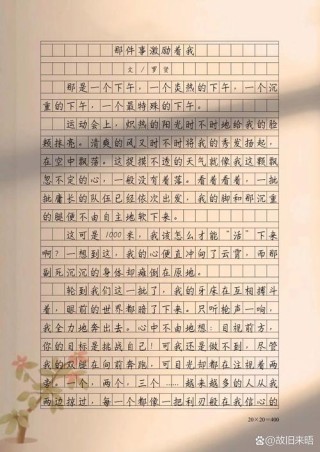 那件事激励着我
文/季
那是一个下午，一个炎热的下午，一个沉
重的下午，一个最特殊的下午。
运动会上，炽热的阳光时不时地给我的脸
颊抹亮。清爽的风又时不时将我的秀发扬起，
在空中飘荡。这捉摸不透的天气就像我这颗飘
忽不定的心，一般没有着落。看着看着，一批
批庸长的队伍已经依次出发，我的脚和那沉重
的腿便不由自主地软下来。
这可是1000米，我该怎么才能“活”下来
啊？一想到这，我的心便直冲向了云霄，而那
副死沉沉的身体却瘫倒在原地。
轮到我们这一批了，我的牙床在互相搏斗
着！眼前的世界都暗了下来。只听枪声一响，
我全力地奔出去。心中不由地想：目视前方，
你的目标是挑战自己！可我还是做不到，尽管
我的双腿在向前奔跑，可目光却都在注视着两
旁。一个，两个，三个……越来越多的人从我
两边掠过，每一个都像一把利刃般在我信心的
20×20=400
@故旧来晤